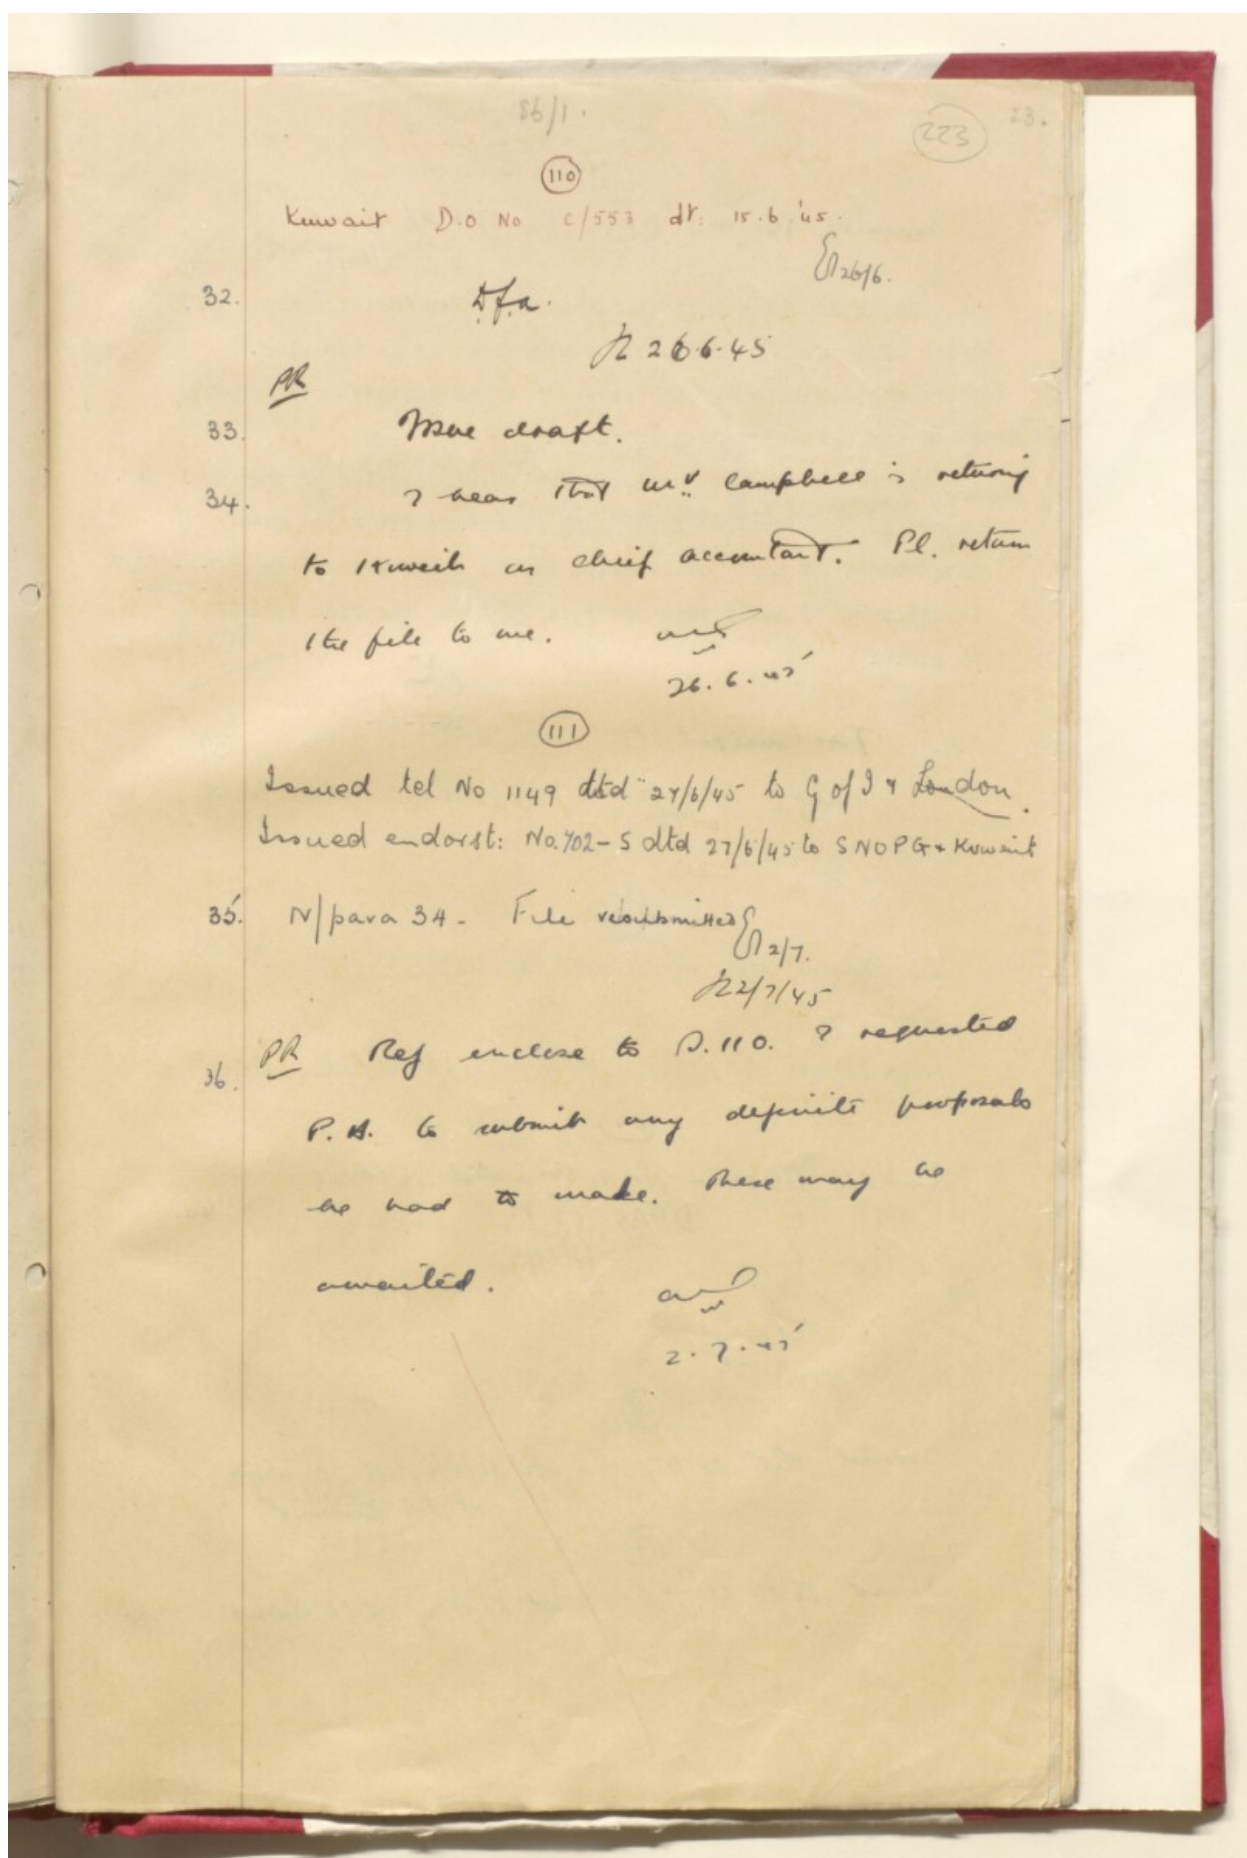 86/1.
223
23.
110
Kuwait D.O No C/553 dt: 15.6.'45.
26/6.
32. D.f.a.
26.6.45
PR
33. draft.
34. I hear that Mr Campbell is returning
to Kuwait as chief accountant. Pl. return
the file to me.
26.6.45
111
Issued tel No 1149 dtd 27/6/45 to G of I & London.
Issued endorst: No. 702-S dtd 27/6/45 to SNOPG & Kuwait
35. N/para 34 - File resubmitted
2/7.
2/7/45
36. PR Ref enclose to S.110. I requested
P.A. to submit any definite proposals
he had to make. These may be
awaited.
2.7.45